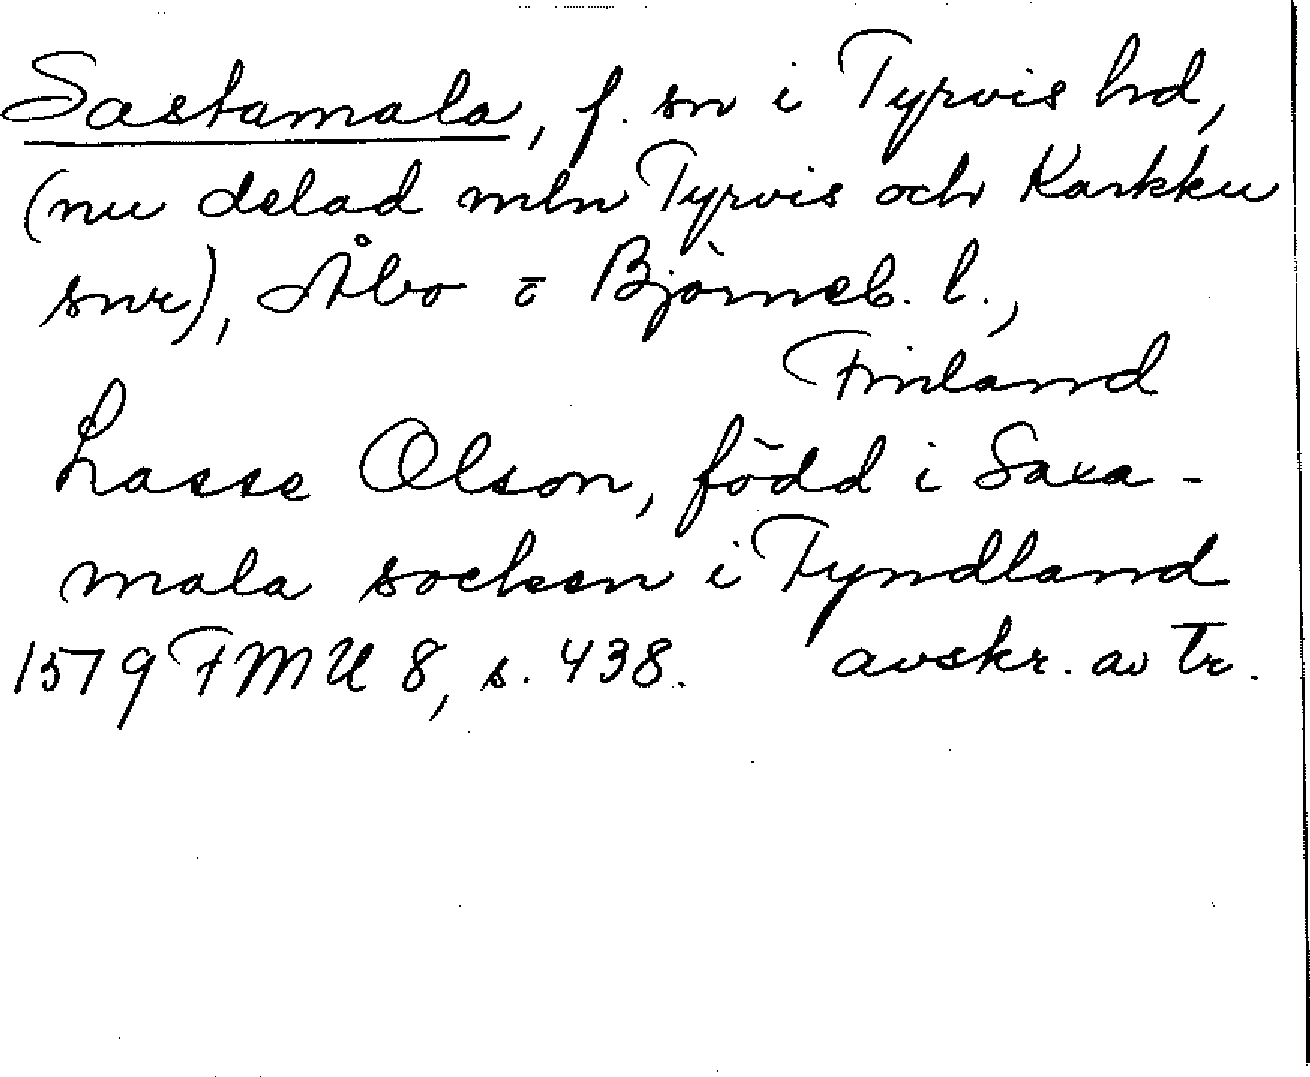 Sastamala, f. sn i Tyrvis hd,
(nu delad mln Tyrvis och Karkku
snr), Åbo o Björneb. l.,
Finland
Lasse Olson, född i Saxa-
mala socken i Fyndland
1579 FMU 8, s. 438. avskr. av Tr.